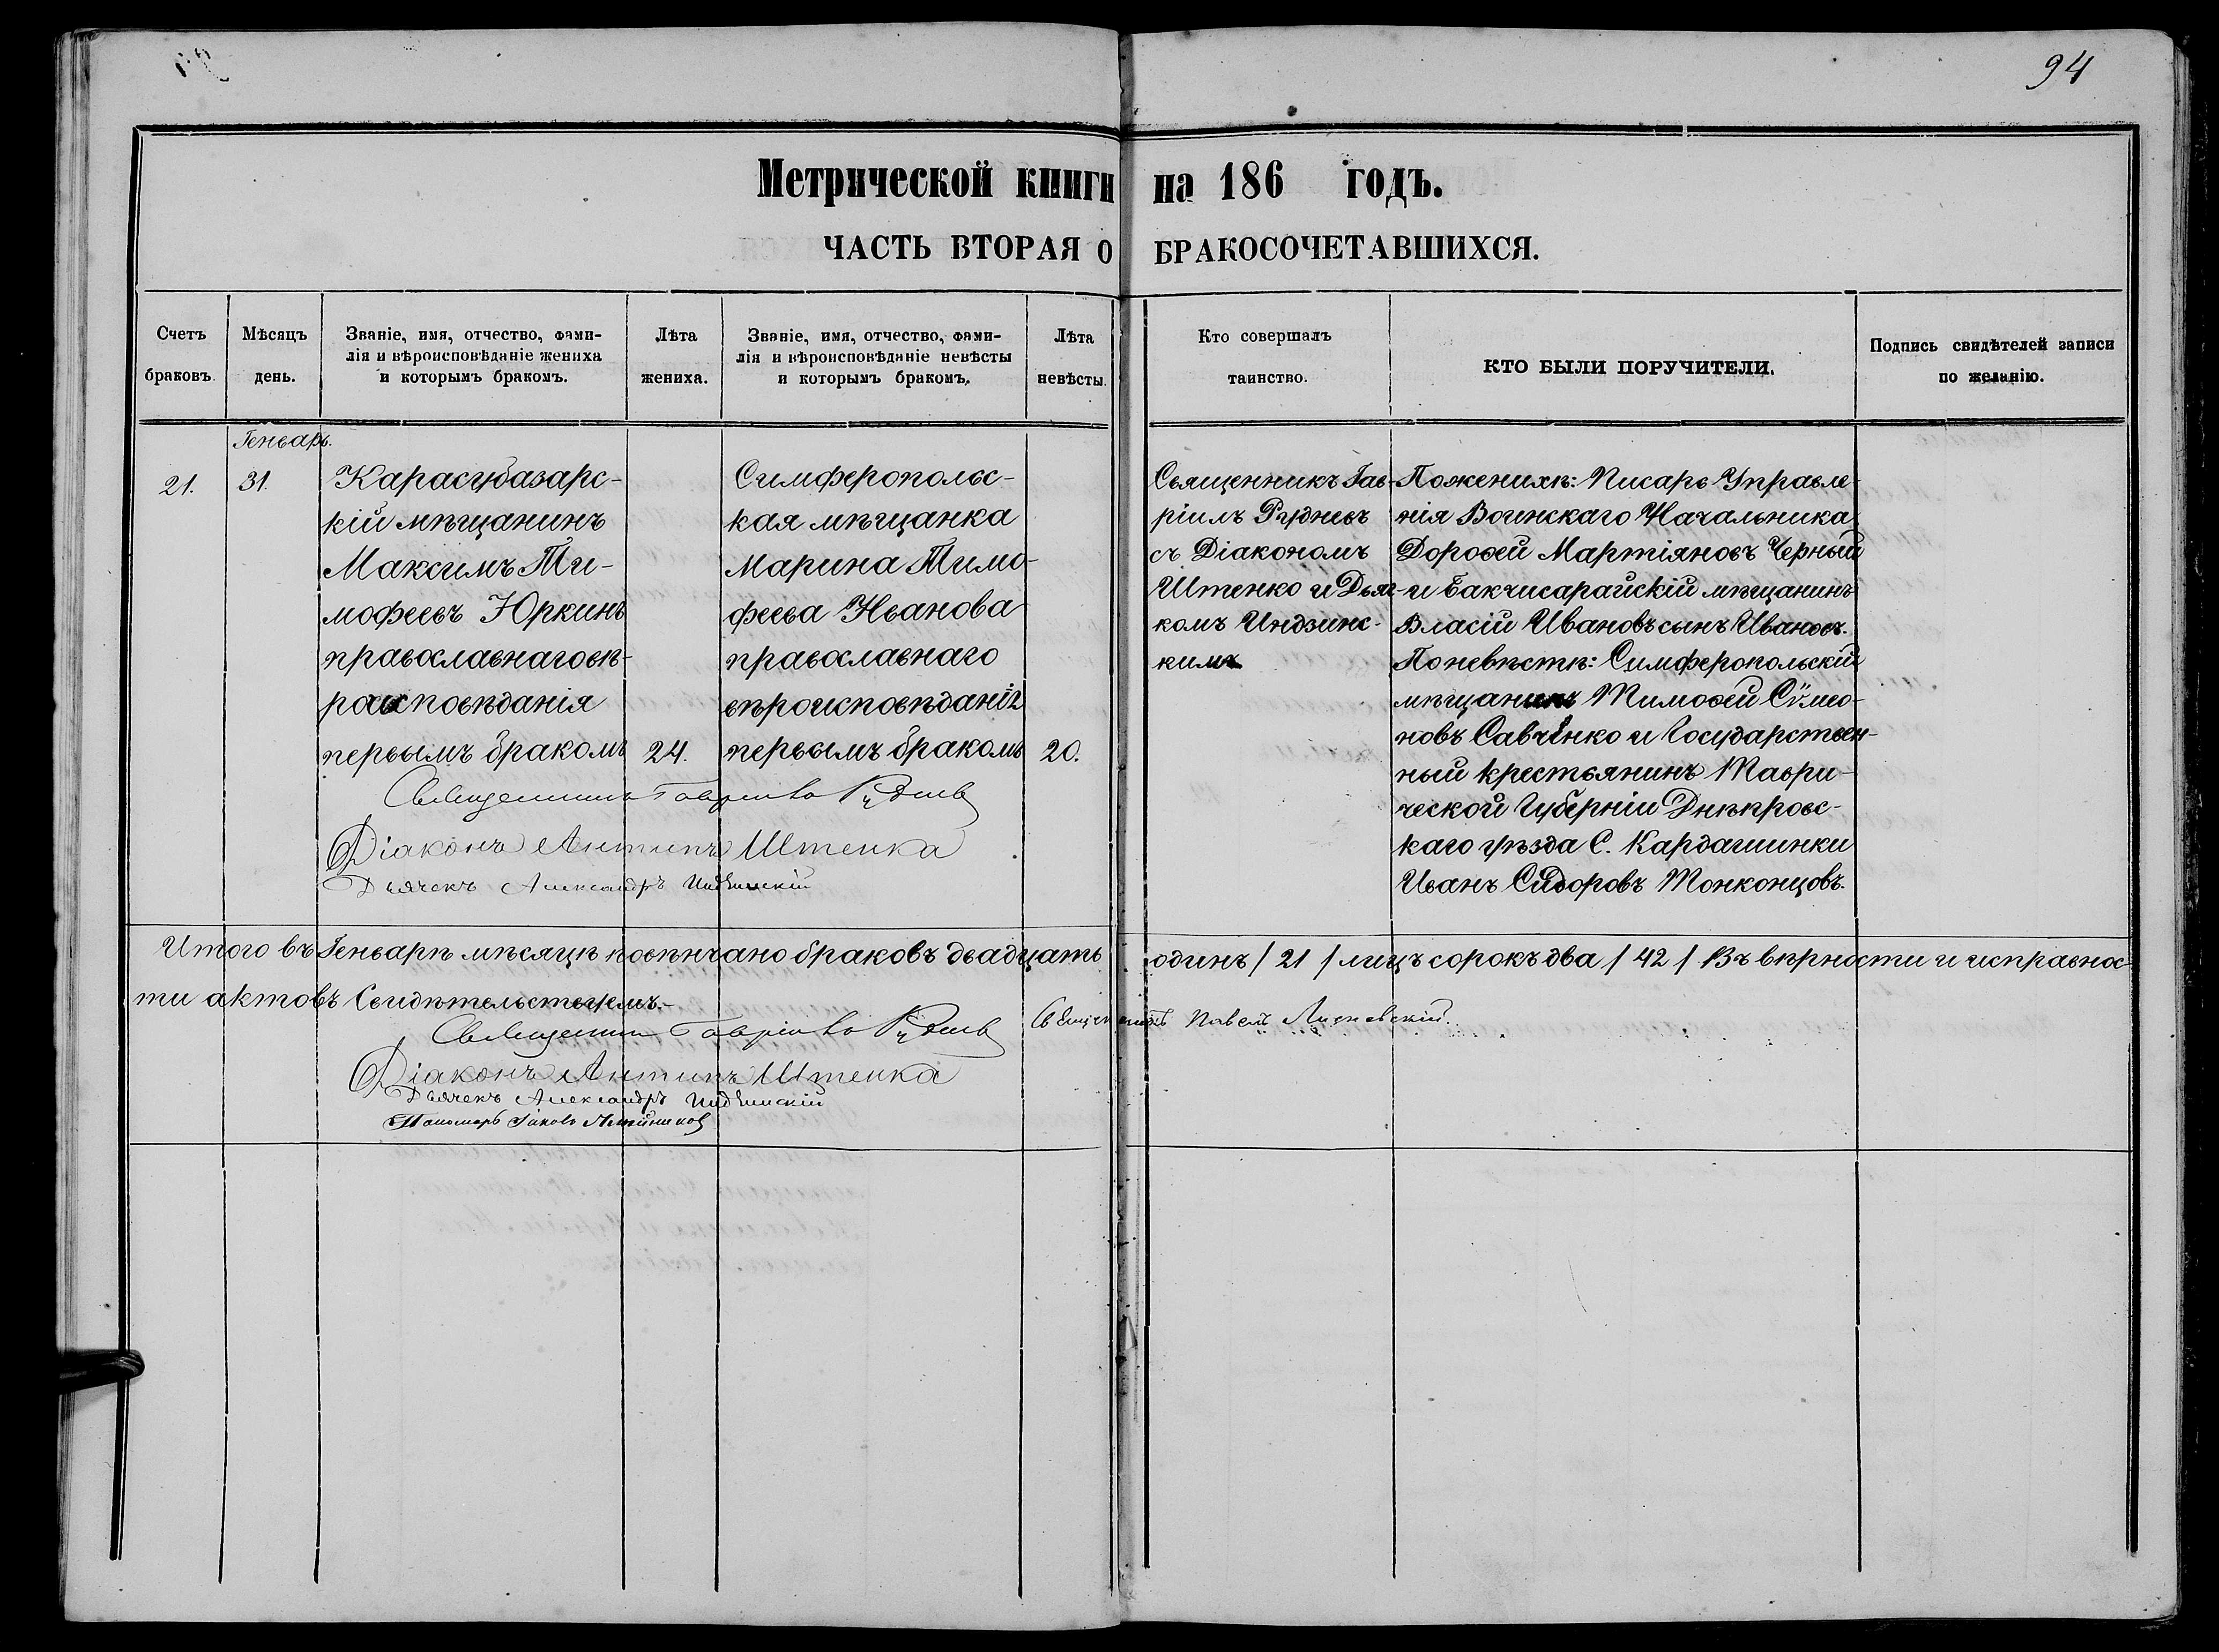 94
Метрической книги на 186 годъ.
ЧАСТЬ ВТОРАЯ О БРАКОСОЧЕТАВШИХСЯ.
Счетъ браковъ.
Мѣсяцъ день.
Званіе, имя, отчество, фами-
лія и вѣроисповѣданіе жениха
и которымъ бракомъ.
Лѣта жениха.
Званіе, имя, отчество, фами-
лія и вѣроисповѣданіе невѣсты
и которымъ бракомъ.
Лѣта невѣсты.
Кто совершалъ
таинство.
КТО БЫЛИ ПОРУЧИТЕЛИ.
Подпись свидѣтелей записи
по желанію.
Геньварь.
21.
31.
Карасубазарс-
кій мѣщанинъ
Максимъ Ти-
мофеевъ Юркинъ
православнаго вѣ-
роисповѣданія
первымъ бракомъ
24.
Симферопольс-
кая мѣщанка
Марина Тимо-
феева Иванова
православнаго
вѣроисповѣданія
первымъ бракомъ
20.
Священникъ Гав-
ріилъ Рудневъ
съ Діакономъ
Штенко и Дьяч-
комъ Индзинс-
кимъ
По женихѣ: Писарь Управле-
нія Воинскаго Начальника
Дорофей Мартіяновъ Черный
и Бакчисарайскій мѣщанинъ
Власій Ивановъ сынъ Ивановъ.
По невѣстѣ: Симферопольскій
мѣщанинъ Тимофей Сѵмео-
новъ Савченко и Государствен-
ный крестьянинъ Таври-
ческой Губерніи Днѣпровс-
каго уѣзда С. Кардашинки
Иванъ Сидоровъ Тонконцовъ.
Священникъ Гавріилъ Рудневъ
Діаконъ Антипъ Штенка
Дьячекъ Александръ Индзинскій
Итого въ Геньварѣ мѣсяцѣ повѣнчано браковъ двадцать одинъ / 21 / лицъ сорокъ два / 42 / Въ вѣрности и исправнос-
ти актовъ Свидѣтельствуемъ.-
Священникъ Гавріилъ Рудневъ
Священникъ Павелъ
Діаконъ Антипъ Штенка
Дьячекъ Александръ Индзинскій
Пономарь Іаковъ